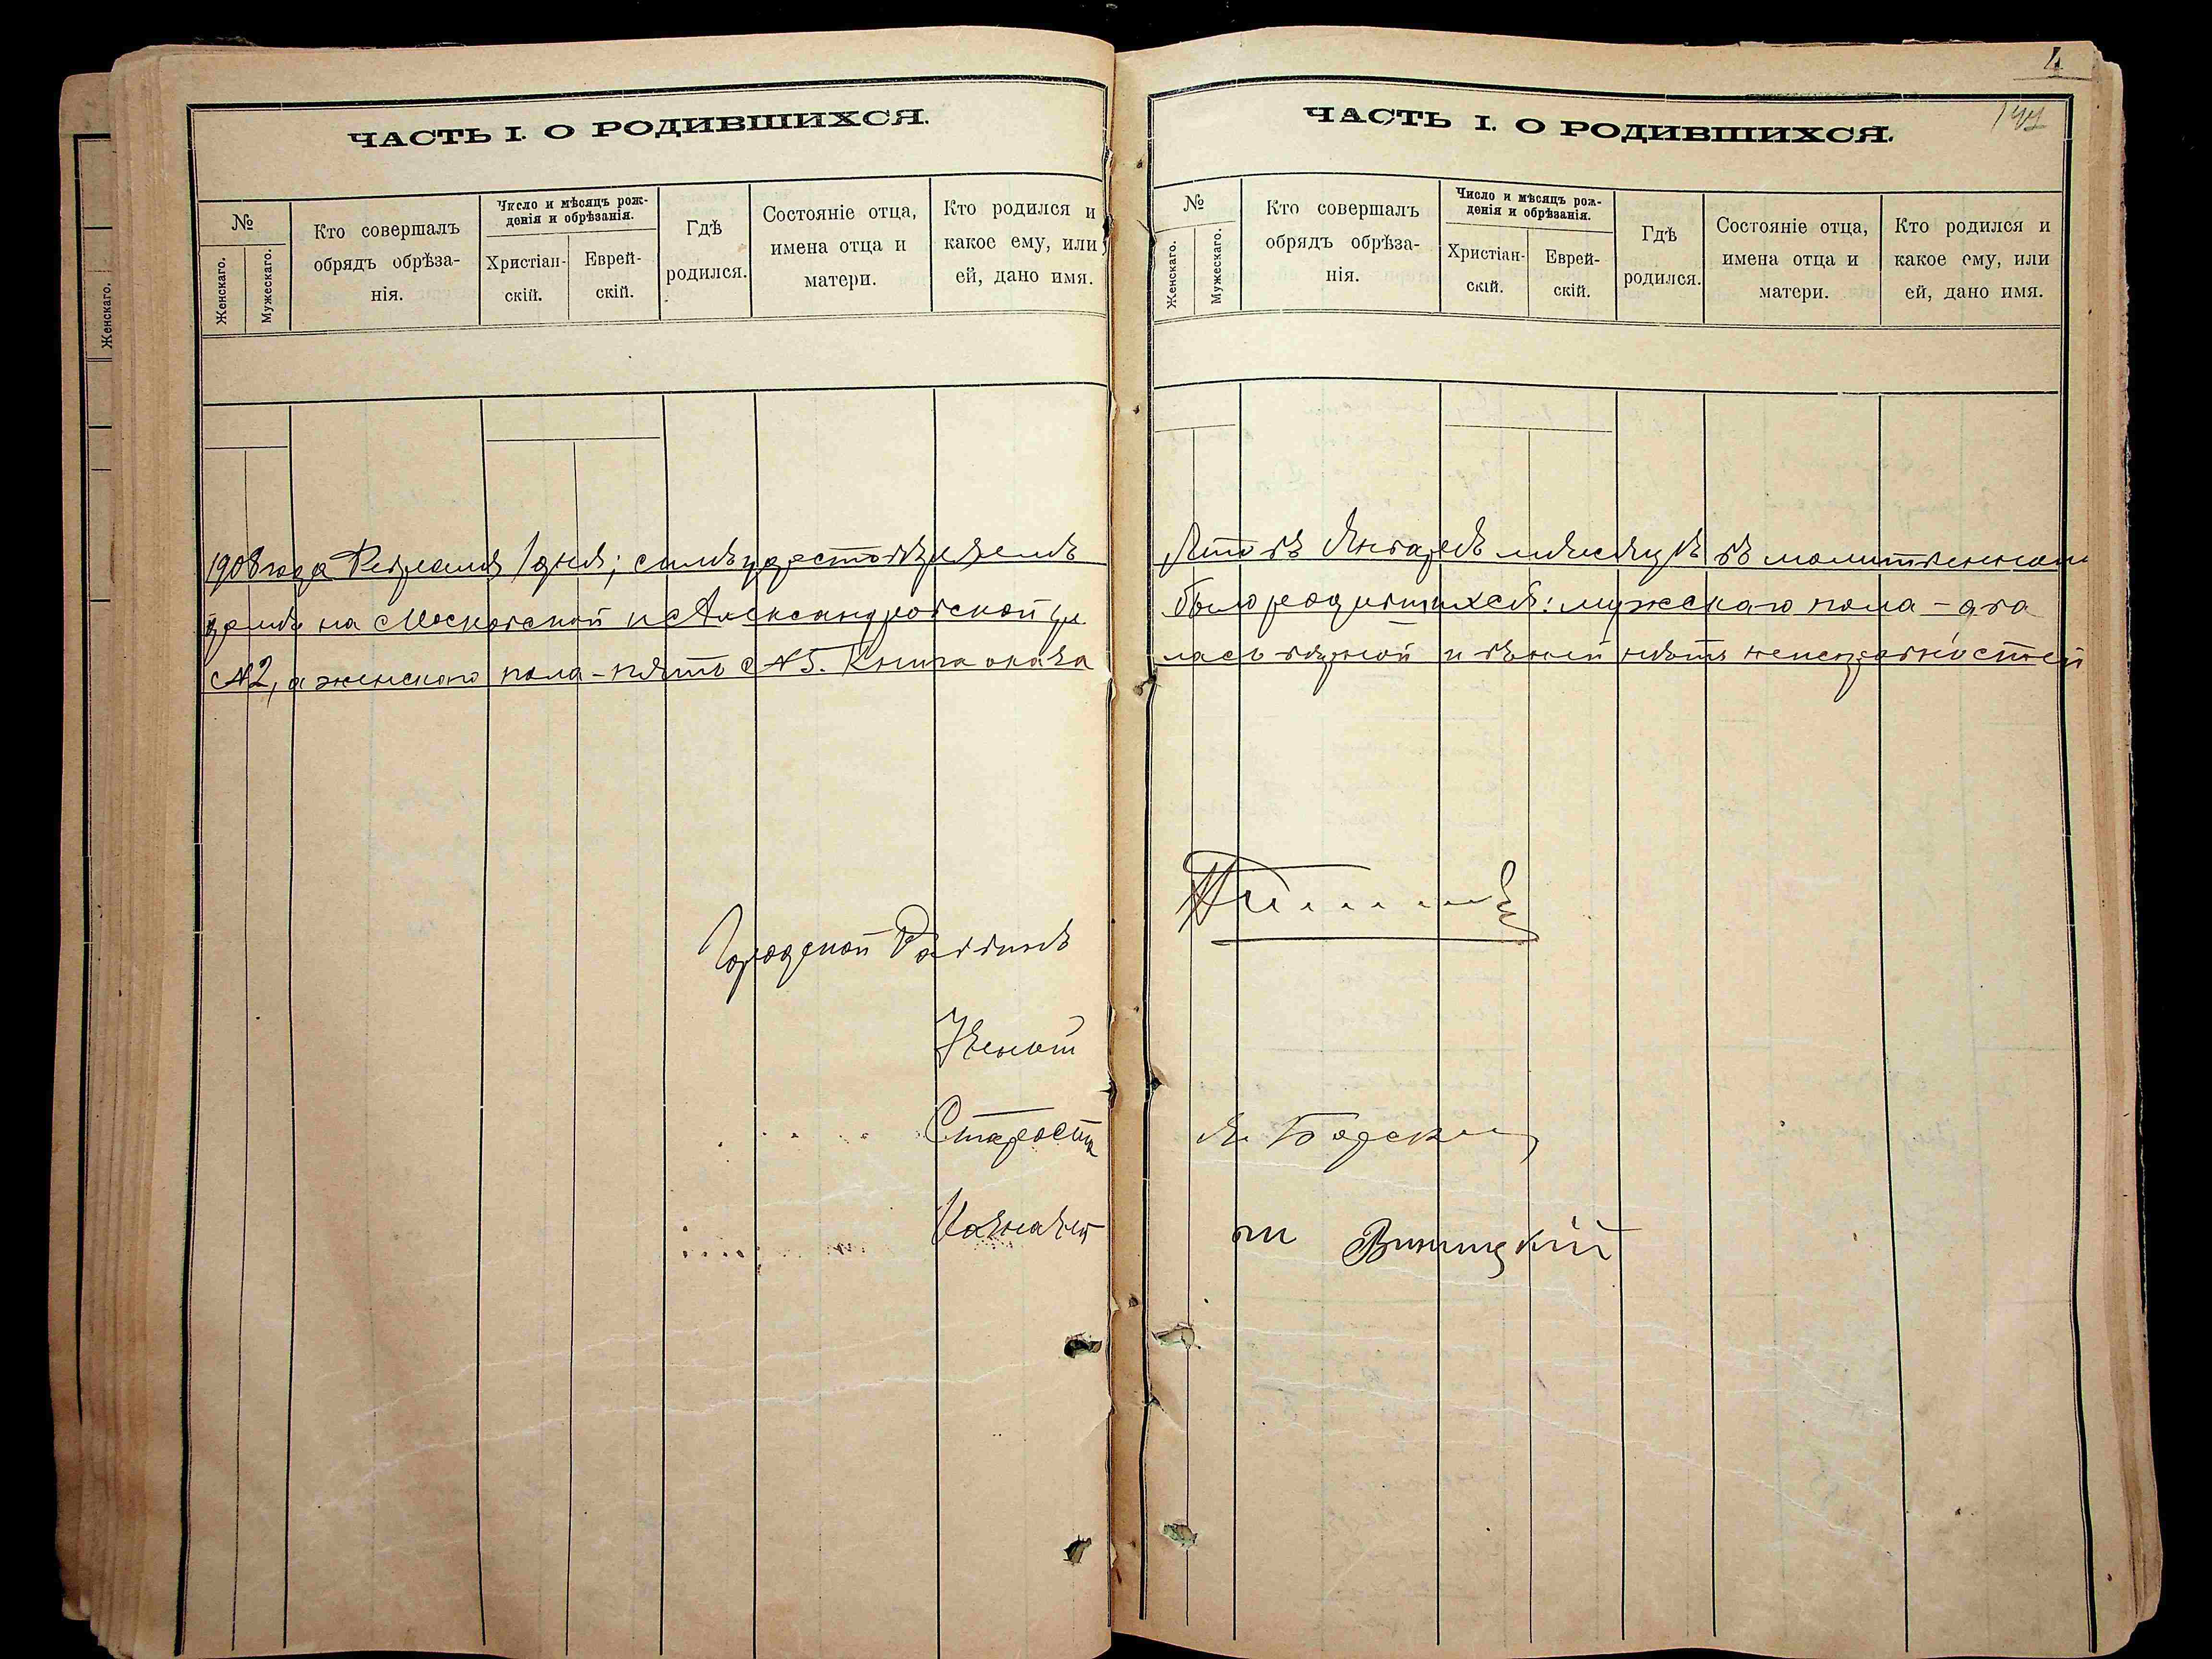 ЧАСТЬ I. О РОДИВШИХСЯ.
№
Женскаго.
Мужескаго.
Кто совершалъ
обрядъ обрѣза-
нія.
Число и мѣсяцъ рож-
денія и обрѣзанія.
Христіан-
скій.
Еврей-
скій.
Гдѣ
родился.
Состояніе отца,
имена отца и
матери.
Кто родился и
какое ему, или
ей, дано имя.
1908 года Февраля 1 дня; симъ удостовѣряемъ
домѣ на Московской и Александровской ул.
№2, а женскаго пола - пять с №5. Книга оказа
Городской Раввинъ
Ученый
Староста
Казначей
Женскаго.
4
ЧАСТЬ I. О РОДИВШИХСЯ.
№
Женскаго.
Мужескаго.
Кто совершалъ
обрядъ обрѣза-
нія.
Число и мѣсяцъ рож-
денія и обрѣзанія.
Христіан-
скій.
Еврей-
скій.
Гдѣ
родился.
Состояніе отца,
имена отца и
матери.
Кто родился и
какое ему, или
ей, дано имя.
что въ Январѣ мѣсяцѣ въ молитвенном
было родившихся: мужескаго пола - два
лась вѣрной и въ ней нѣтъ неисправностей
Виницкій